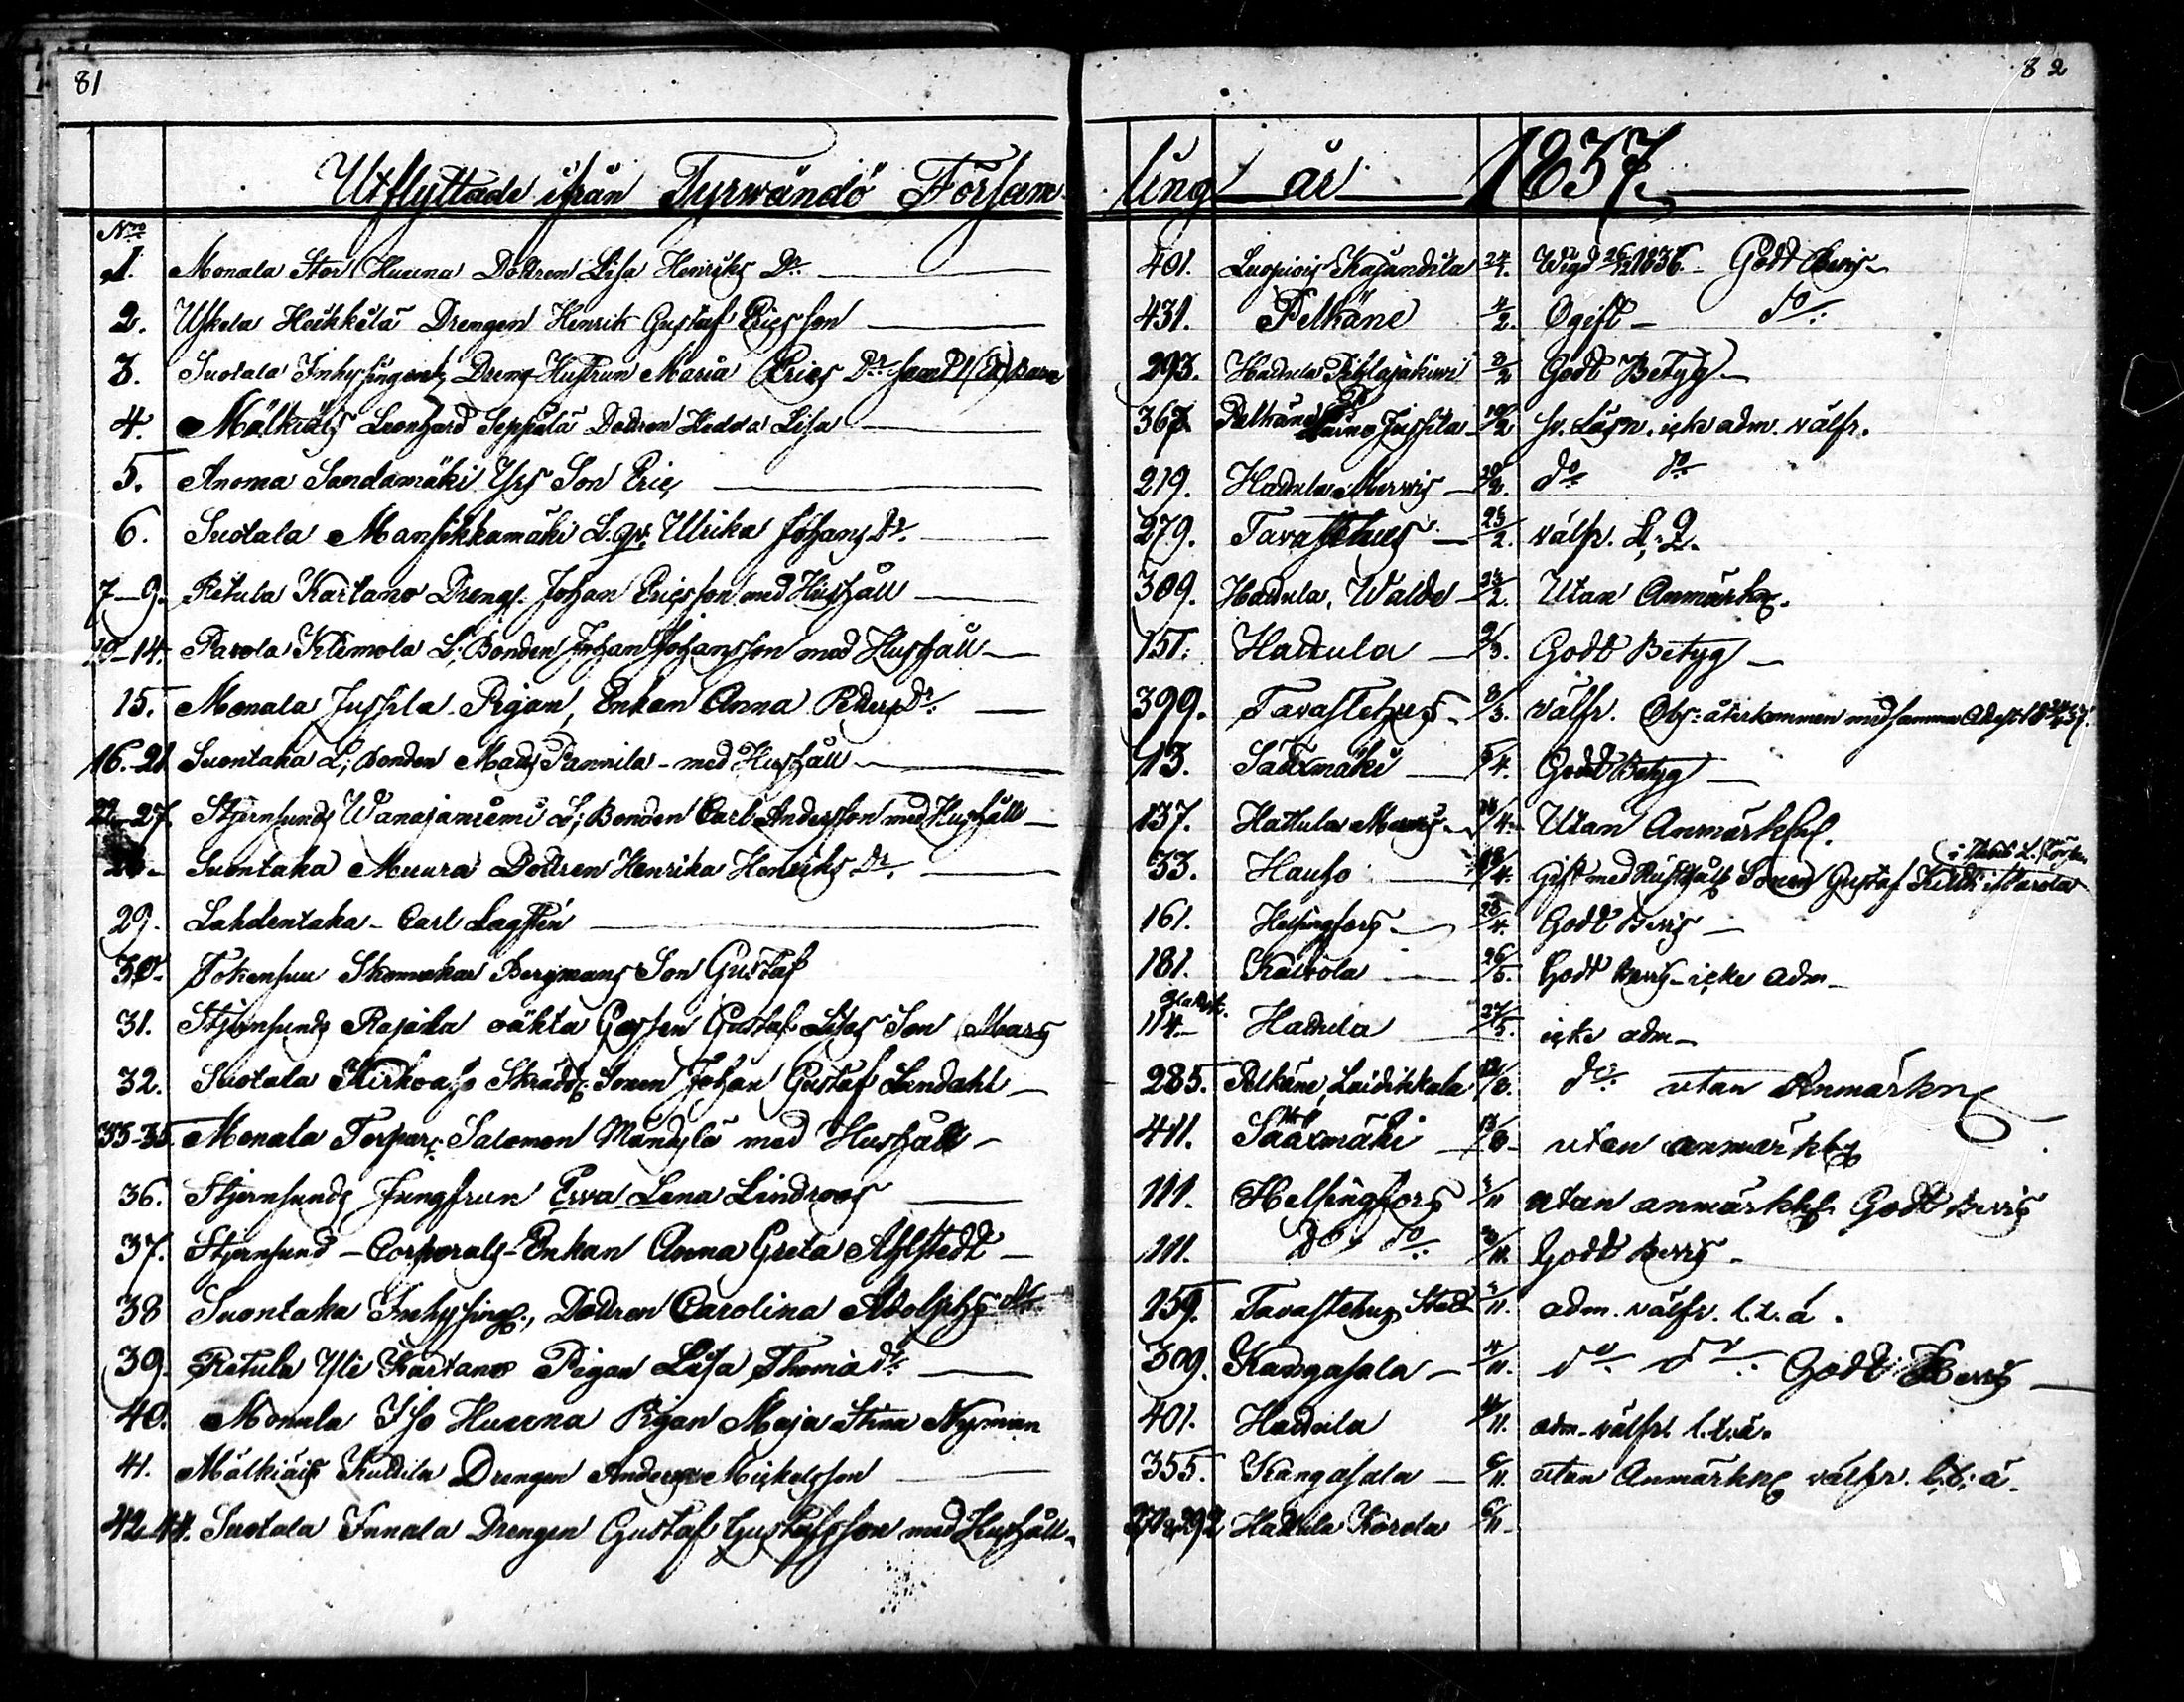 81
82
Utflyttade ifrån Tyrwändö Församling år 1837.
Nro
1. Monala Stor Huuna Dottren Lisa Henriks Dr. 401. Luopiois 24/1. Wigd 26/12 1836. Godt Bewis
2. Uskela Heikkilä Drengen Henrik Gustaf Ericsson 431. Pelkäne 4/2. Ogift do
3. Suotala Inhysinges Dreng Hustrun Maria Erics Dr samt 1 (Et) barn 293. Hattula 3/2 Godt Betyg
4. Mälkiäis Leonhard Seppälä Dottren Hedda Lisa 367 Pelkäne Jussila 19/2 sv. Läsn. icke adm. välfr.
5. Anoma Sandamäki Son Eric 219. Hattula Merwis do do
6. Suotala Mansikkamäki Ulrika Johans Dr. 279. Tavastehus 23/2. välfr.
7-9. Retula Kartano Drengs. Johan Ericsson med Hushåll 309. Hattula, Walde 23/2. Utan Anmärkn.
10-14. Parola Klemola L. Bonden Johan Johansson med Hushåll 151. Hattula Godt Betyg
15. Monala Jussila Pigan, Enkan Anna Peders Dr. 399. Tavastehus 8/3. välfr. Obs: återkommen med samma
16-21 Suontaka L; Bonden Mats Pannila med Hushåll 13. Sääxmäki 5/4. Godt Betyg
22-27. Stjernsunds Wanajaniemi L; Bonden Carl Andersson med Hushåll 137. Hattula Merwis Utan Anmärkn.
28 Suontaka Muura Dottren Henrika Henriks Dr. 33. Hauho Gift med Rusth. Sonen Gustaf
29. Lahdentaka Carl Lagstén 161. Helsingfors 28/4. Godt Bewis
30. Tokensuu Skomakar Bergmans Son Gustaf 181. Kalvola 26/5. Godt Bewis icke adm
31. Stjernsunds Rajala oäkta Gossen Gustaf Lisas Son 114. Hattula 27/5. icke adm
32. Suotala Kirkoaho Skrädd. Sonen Johan Gustaf Lindahl 285. Pelkäne, Laidikkala 12/8. do utan Anmärkn
33-35 Monala Torpar. Salomon Mändylä med Hushåll 411. Sääxmäki 13/8 utan anmärkn
36. Stjernsunds Jungfrun Ewa Lena Lindroos 111. Helsingfors utan anmärkn. Godt Bewis
37. Stjernsund Corporals Enkan Anna Greta Ahlstedt 111. Do do Godt Bewis
38 Suontaka Inhysing., Dottren Carolina Adolphs dr 159. Tavastehus Stad 2/11. adm. välfr. l.t.ä.
39. Retula Yli Kartano Pigan Lisa Thoma dr. 309. Kangasala 4/11. do do Godt Bewis
40. Monala Iso Huuna Pigan Maja Stina Nyman 401. Hattula 4/11. adm. välfr. l.t.ä.
41. Mälkiäis Kuttila Drengen Anders Mickelsson 355. Kangasala 6/11. utan Anmärkn välfr. l.t.ä.
42-44. Suotala Innala Drengen Gustaf Gustafsson med Hushåll Hattula Korola 6/11